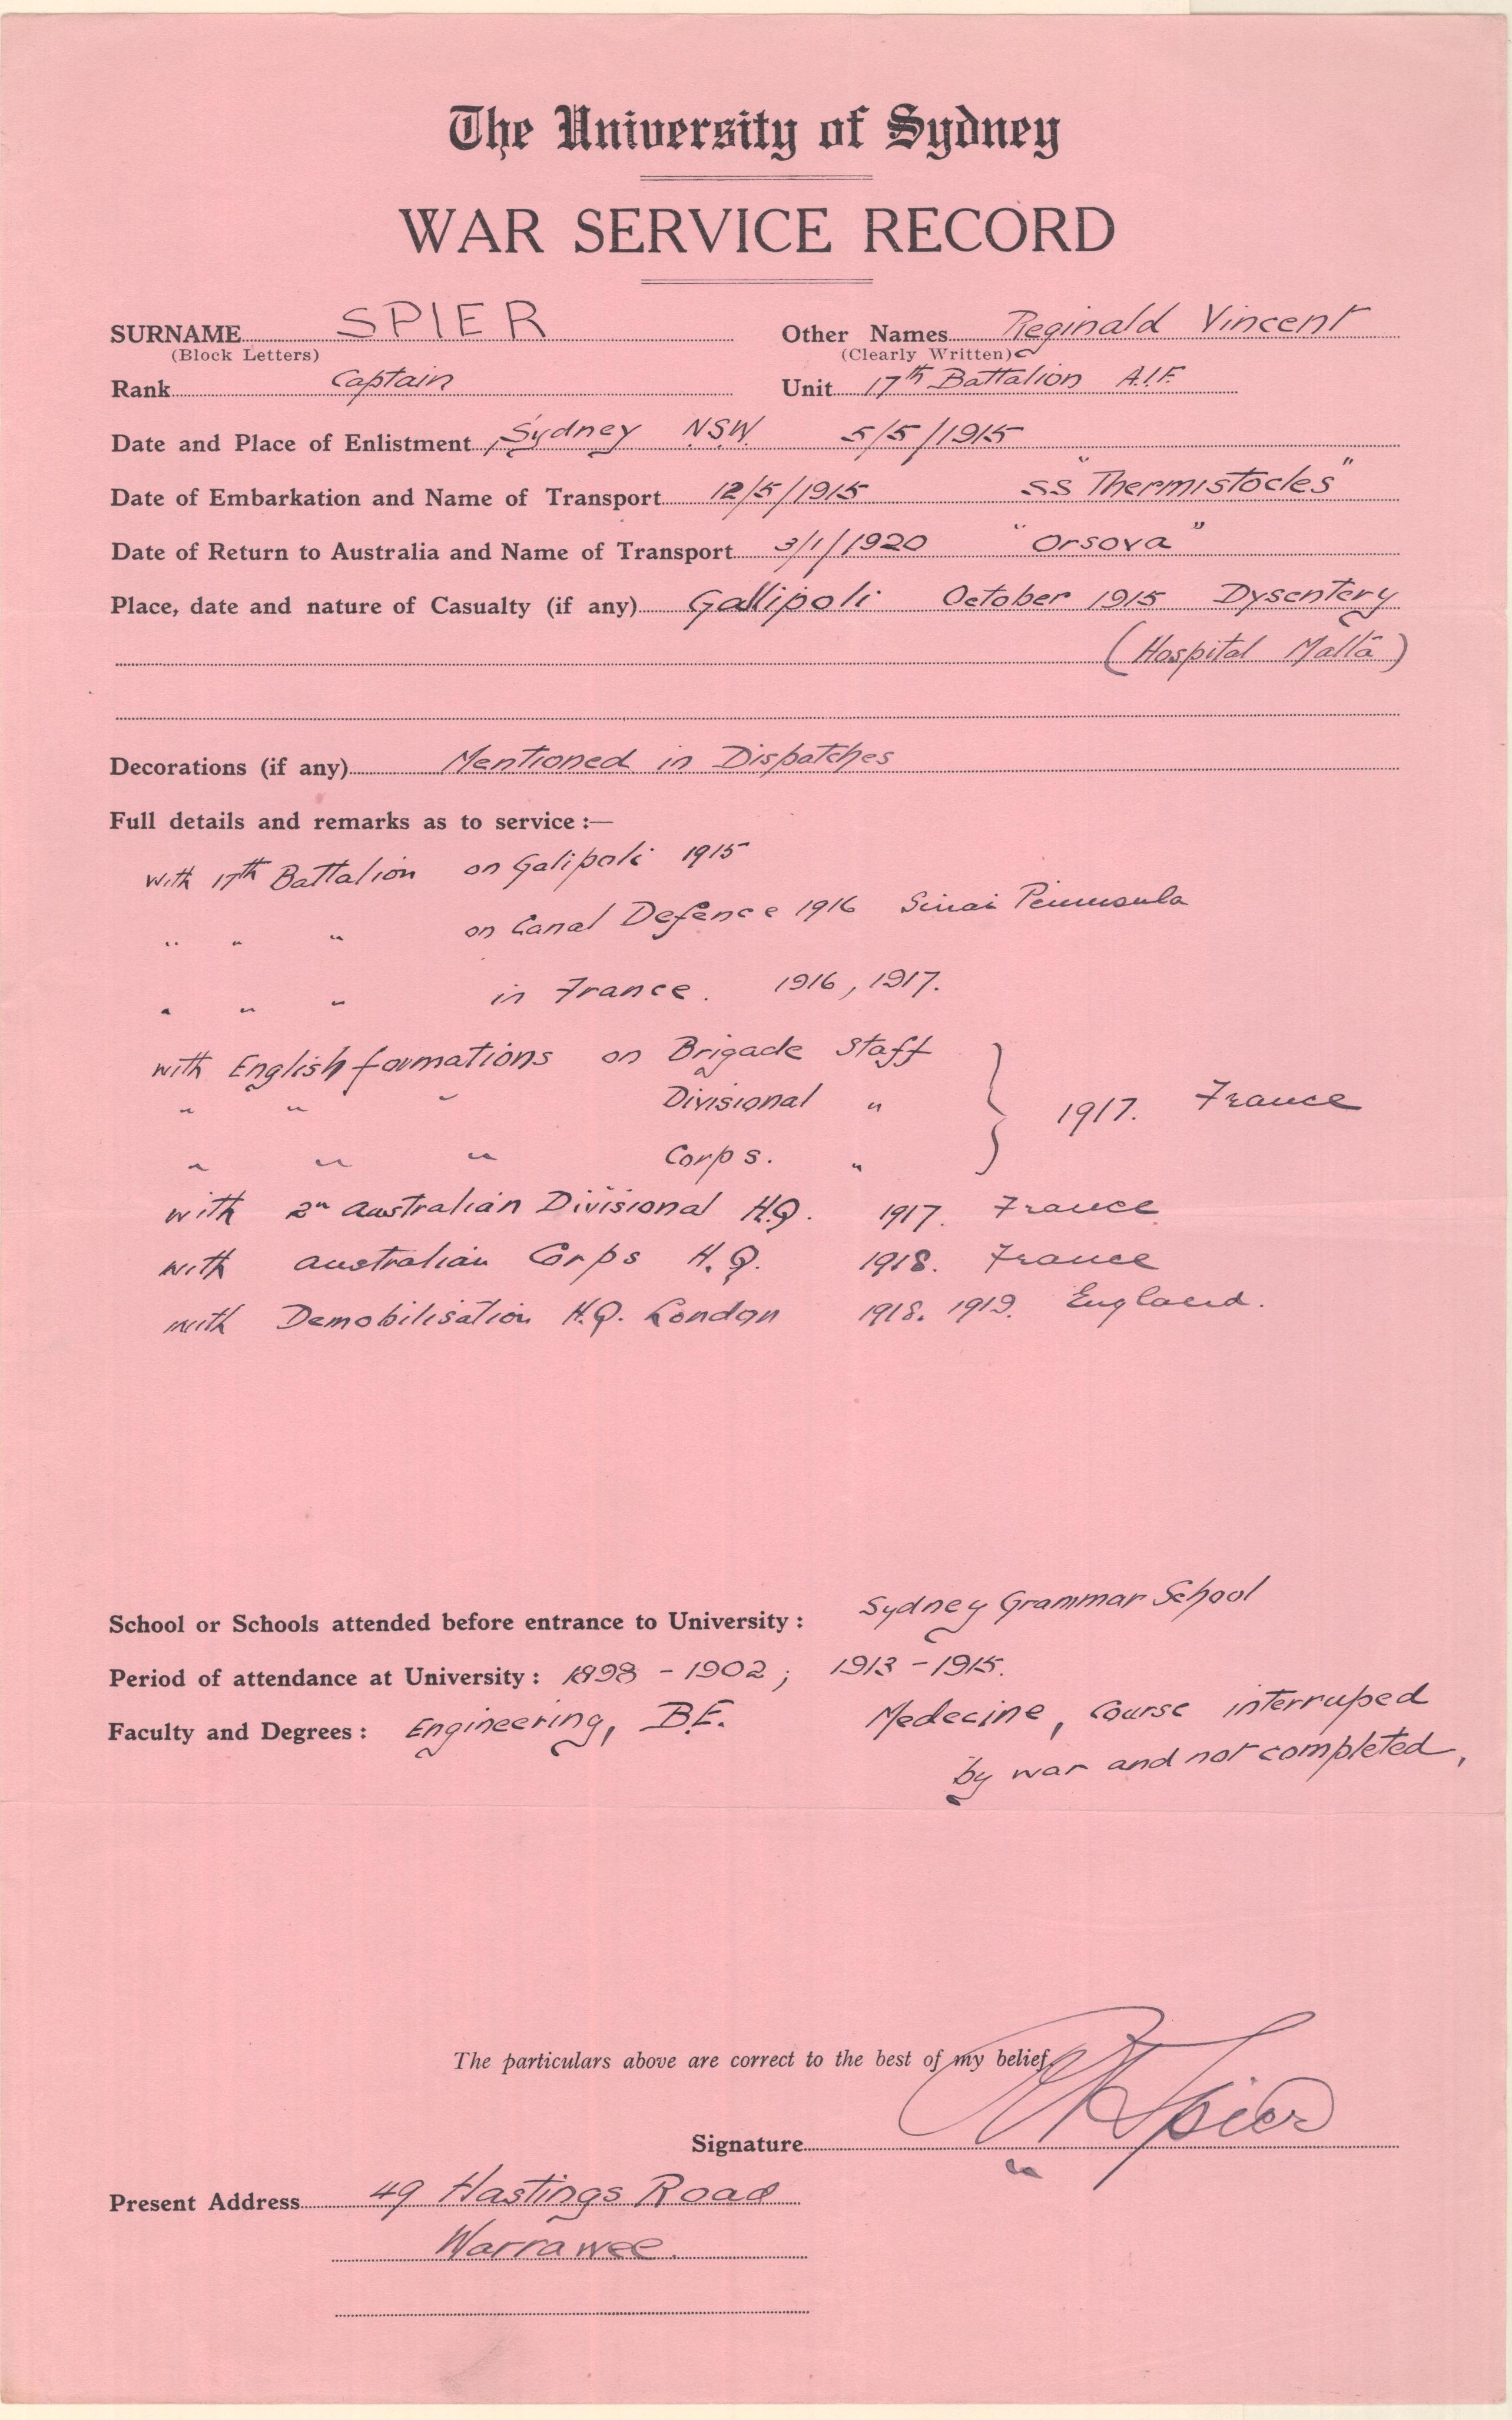 The University of Sydney
WAR SERVICE RECORD
SURNAME SPIER Other Names Reginald Vincent
(Block Letters) (Clearly Written)
Rank Captain Unit 17th Battalion A.I.F.
Date and Place of Enlistment, Sydney N.S.W. 5/5/1915
Date of Embarkation and Name of Transport 12/5/1915 SS "Thermistocles"
Date of Return to Australia and Name of Transport 3/1/1920 "Orsova"
Place, date and nature of Casualty (if any) Gallipoli October 1915 Dysentery
(Hospital Malta)
Decorations (if any) Mentioned in Dispatches
Full details and remarks as to service:—
with 17th Battalion on Galipoli 1915
" " " on Canal Defence 1916 Sinai Peninsula
" " " in France. 1916, 1917.
with English formations on Brigade Staff
" " " Divisional " } 1917. France
" " " Corps. "
with 2n Australian Divisional H.Q. 1917. France
with Australian Corps H.Q. 1918. France
with Demobilisation H.Q. London 1918. 1919. England.
School or Schools attended before entrance to University: Sydney Grammar School
Period of attendance at University: 1898 - 1902; 1913 - 1915.
Faculty and Degrees: Engineering, B.E. Medecine, course interruped
by war and not completed,
The particulars above are correct to the best of my belief,
Signature RVSpier
Present Address 49 Hastings Road
Warrawee.